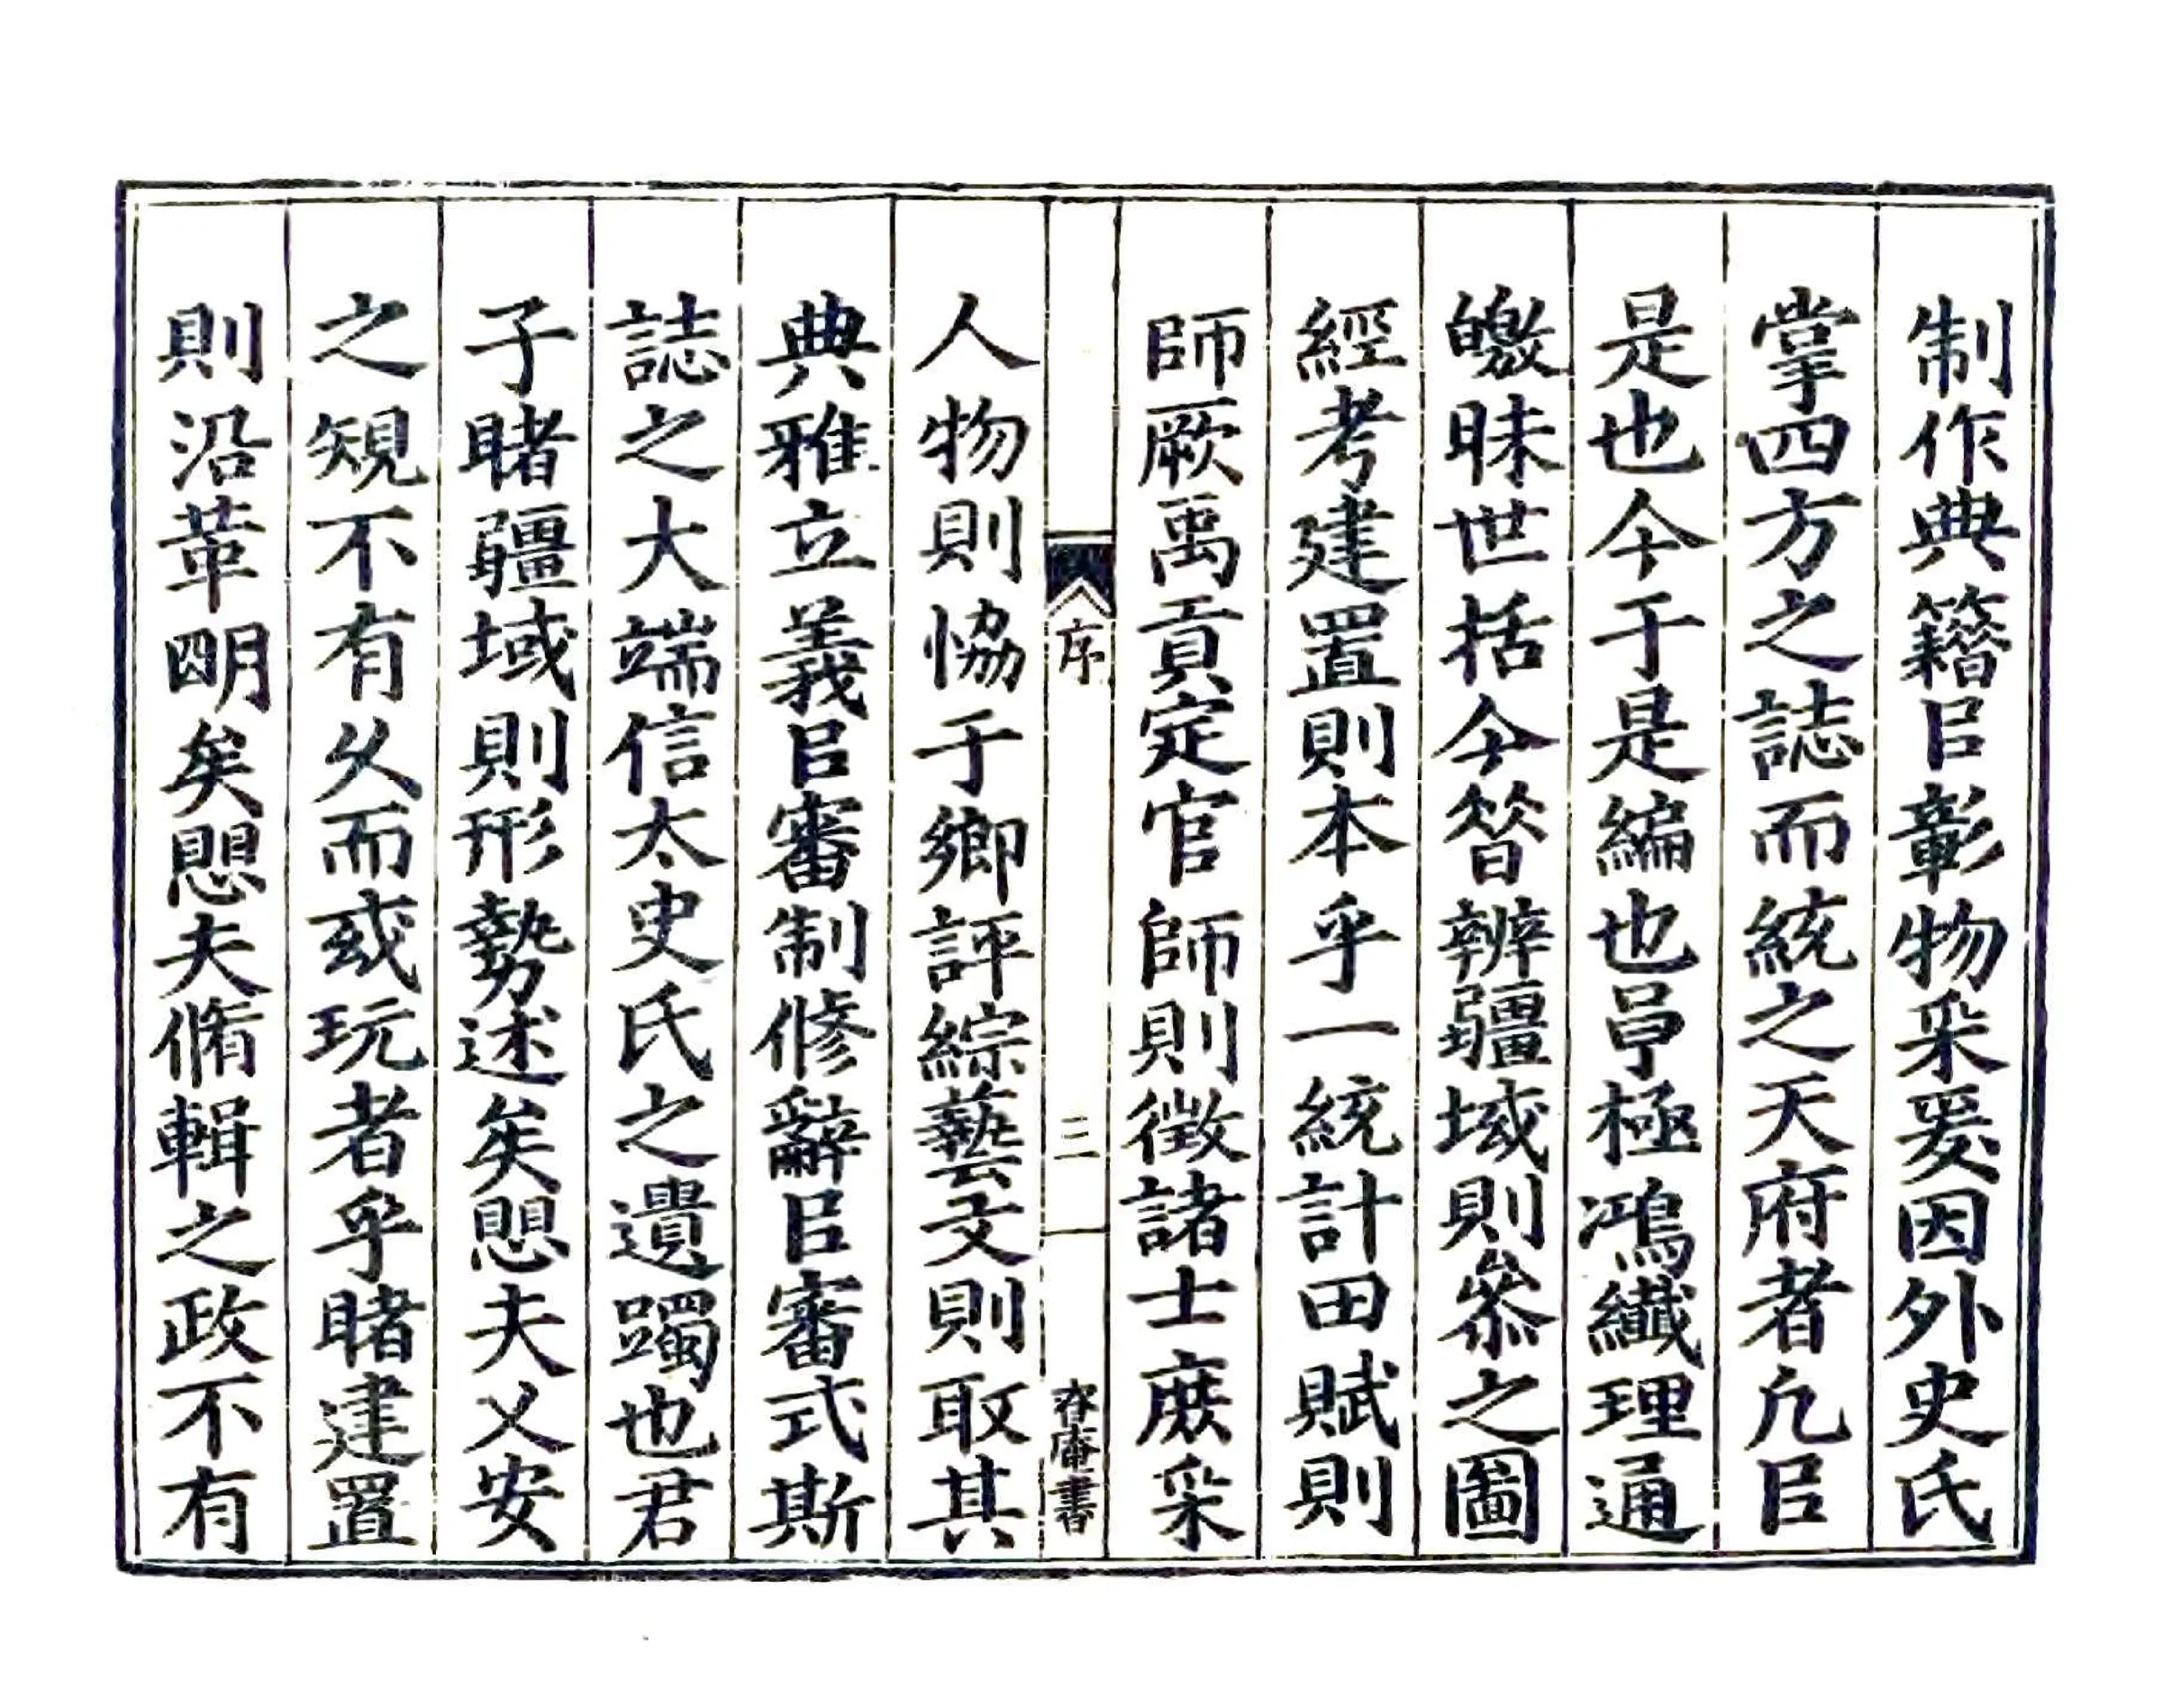 制作典籍㠯彰物采爰因外史氏
掌四方之誌而統之天府者凢㠯
是也今于是編也㫗極鴻纖理通
皦昧世括今昝辨疆域則叅之圖
經考建置則本乎一統計田賦則
師厥禹貢定官師則徵諸士庶采
人物則恊于鄉評綜藝文則取其
典雅立義㠯審制修辭㠯審式斯
誌之大端信太史氏之遺躅也君
子睹疆域則形勢述矣愳夫乂安
之䂓不有乆而或玩者乎睹建置
則沿革明矣愳夫脩輯之政不有
序
三
存庵書